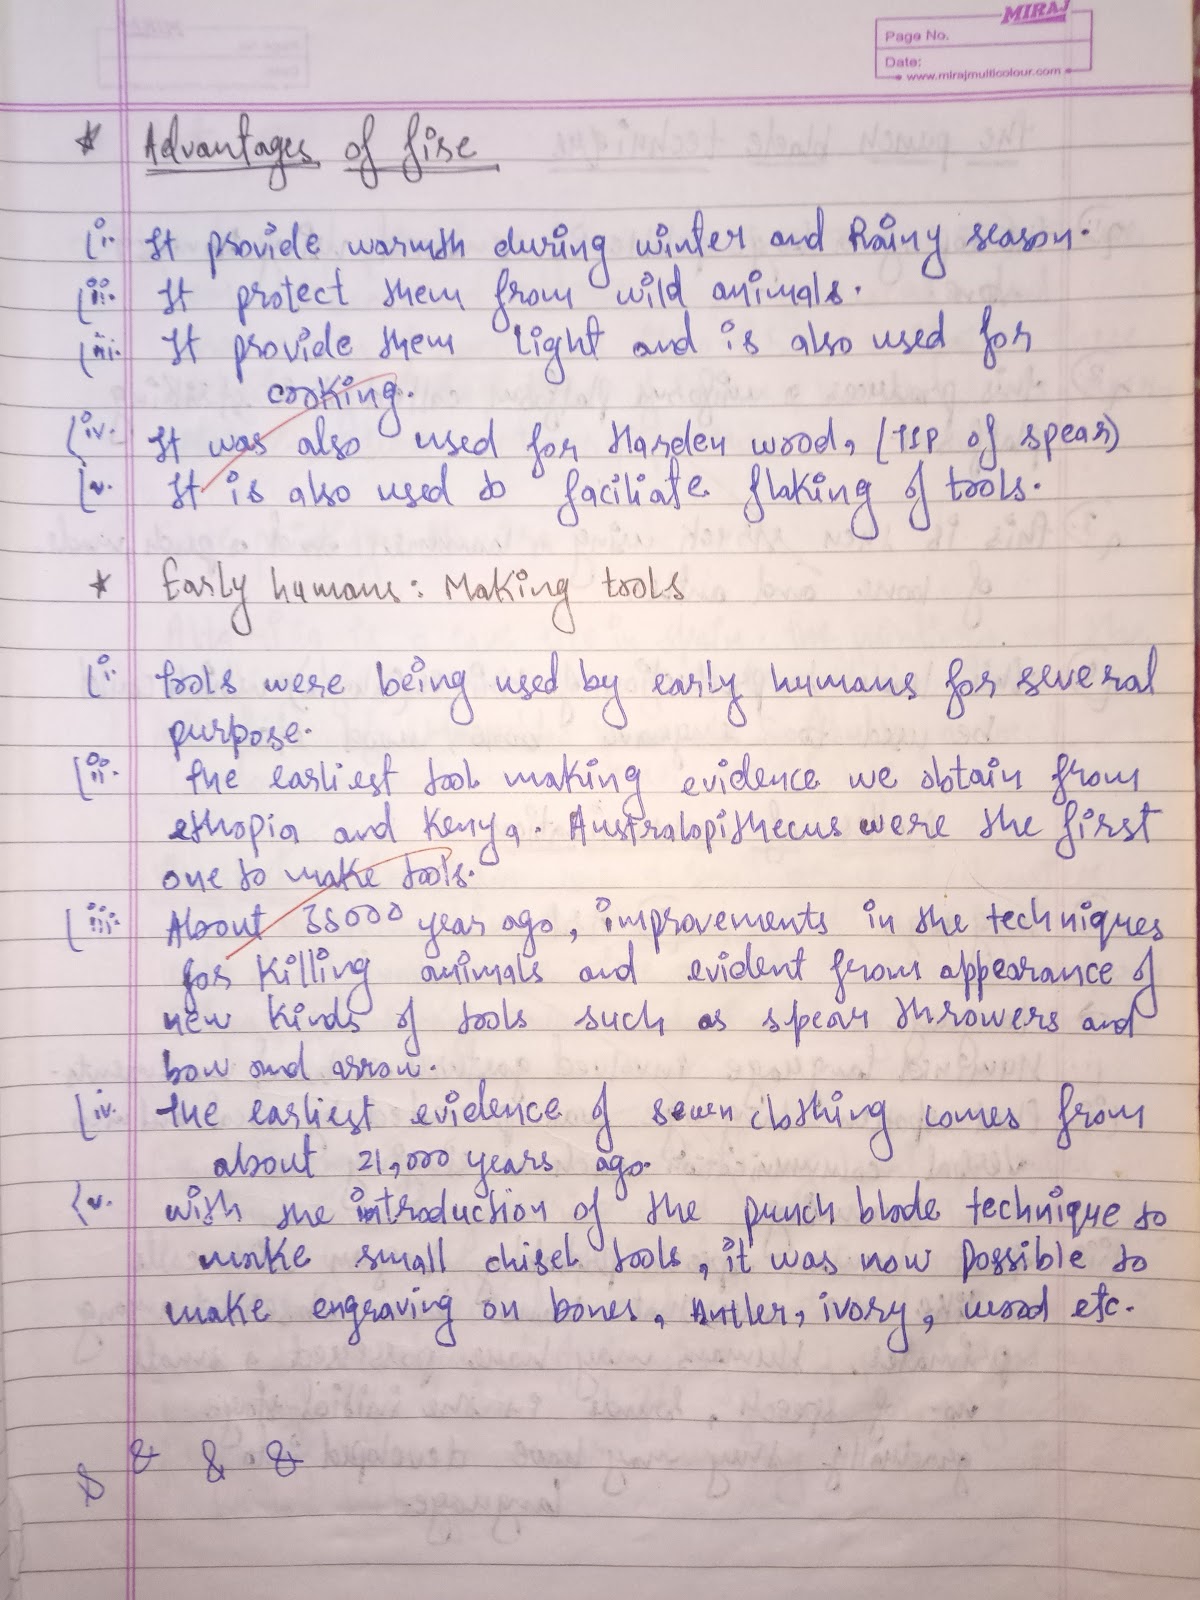 MIRAJ
Page No.
Date:
www.mirajmulticolour.com
* Advantages of fire
(i. It provide warmth during winter and Rainy season.
(ii. It protect them from wild animals.
(iii. It provide them light and is also used for
cooking.
(iv. It was also used for Harden wood, (TIP of spear)
(v. It is also used to faciliate flaking of tools.
* Early humans: Making tools
(i. tools were being used by early humans for several
purpose.
(ii. the earliest tool making evidence we obtain from
ethopia and Kenya. Australopithecus were the first
one to make tools.
(iii. About 35000 year ago, improvements in the techniques
for killing animals and evident from appearance of
new kinds of tools such as spear throwers and
bow and arrow.
(iv. the earliest evidence of sewen clothing comes from
about 21,000 years ago.
(v. with the introduction of the punch blade technique to
make small chisel tools, it was now possible to
make engraving on bones, Antler, ivory, wood etc.
& & &